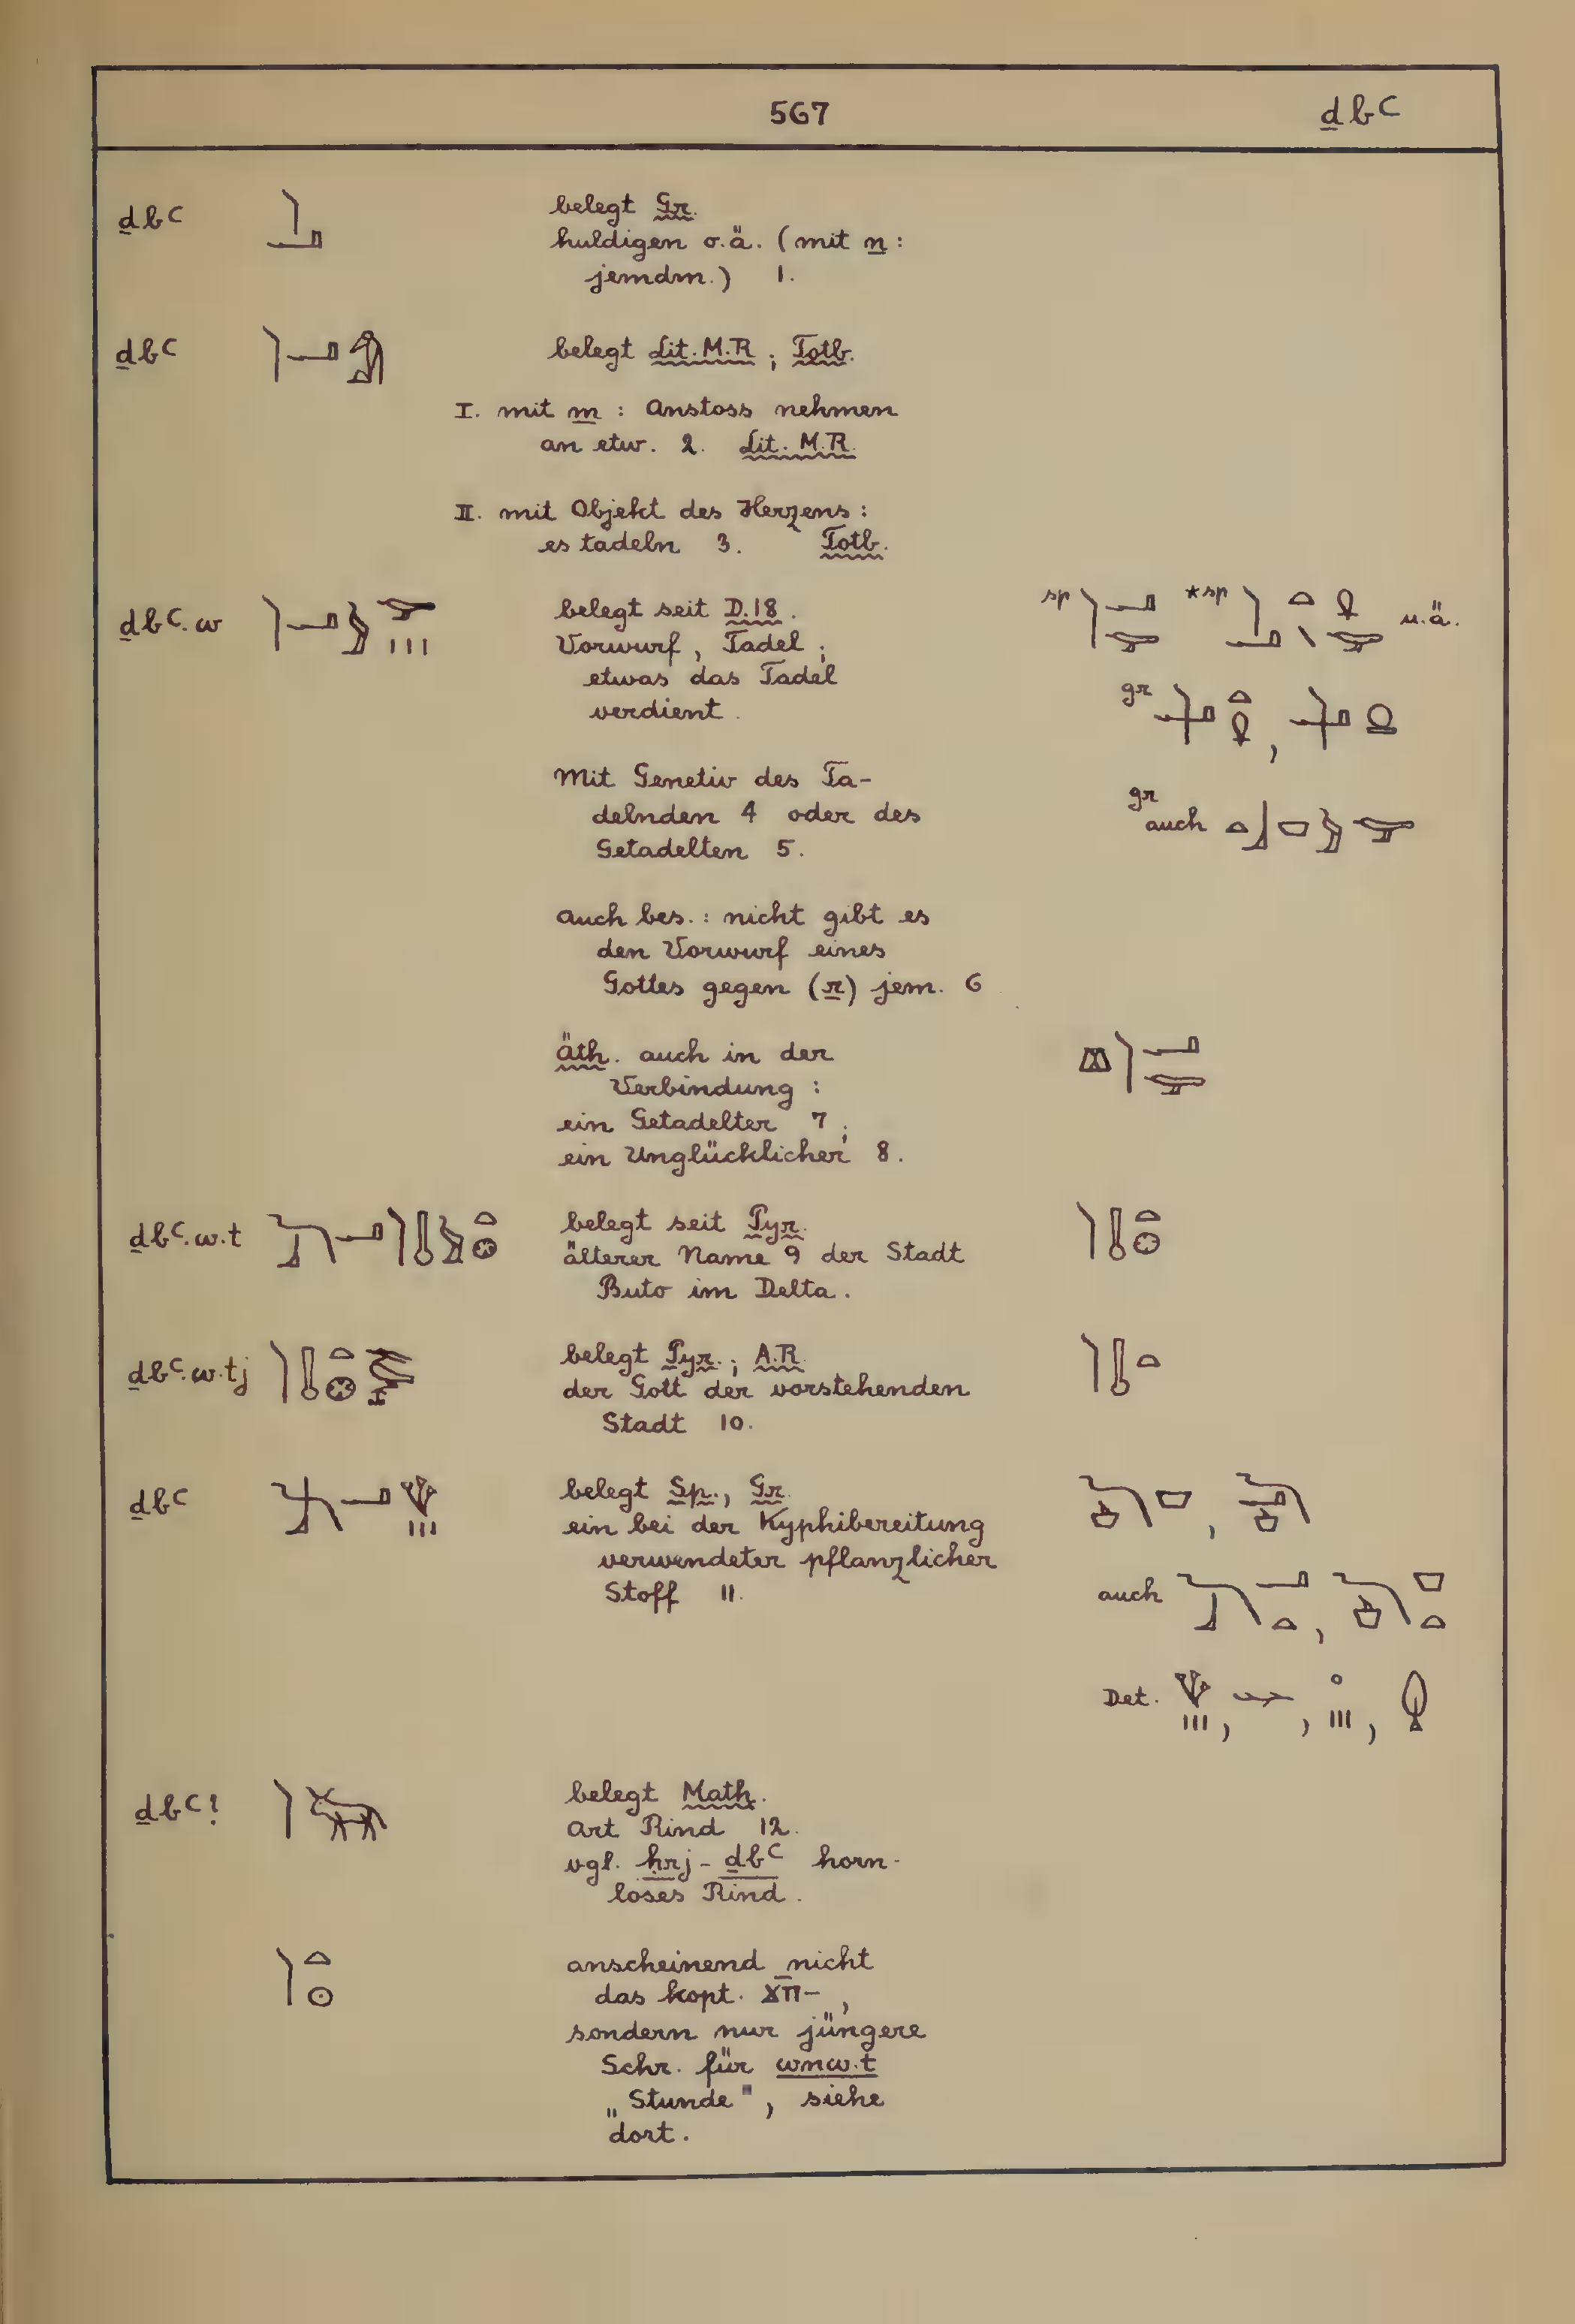 567 ḏbꜥ
ḏbꜥ belegt Gr.
huldigen o.ä. (mit n:
jemdm.) 1.
ḏbꜥ belegt Lit. M.R; Totb.
I. mit m : Anstoss nehmen
an etw. 2. Lit. M.R.
II. mit Objekt des Herzens :
es tadeln 3. Totb.
ḏbꜥ.w belegt seit D.18. sp *sp u.ä.
Vorwurf, Tadel;
etwas das Tadel
verdient. gr ,
Mit Genetiv des Ta-
delnden 4 oder des gr auch
Getadelten 5.
auch bes.: nicht gibt es
den Vorwurf eines
Gottes gegen (r) jem. 6
äth. auch in der
Verbindung :
ein Getadelter 7;
ein Unglücklicher 8.
ḏbꜥ.w.t belegt seit Pyr.
älterer Name 9 der Stadt
Buto im Delta.
ḏbꜥ.w.tj belegt Pyr.; A.R.
der Gott der vorstehenden
Stadt 10.
ḏbꜥ belegt Sp., Gr. ,
ein bei der Kyphibereitung
verwendeter pflanzlicher
Stoff 11. auch ,
Det. , , ,
ḏbꜥ! belegt Math.
Art Rind 12.
vgl. hrj-ḏbꜥ horn-
loses Rind.
anscheinend nicht
das kopt. ϫⲡ̄-,
sondern nur jüngere
Schr. für wnw.t
„Stunde", siehe
dort.